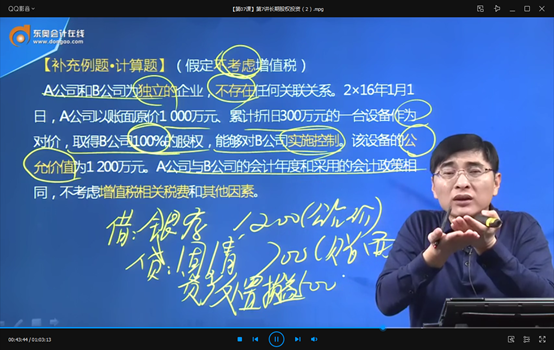 QQ影音
【第07课】第7讲长期股权投资（2）.mpg
东奥会计在线
www.dongao.com
【补充例题•计算题】（假定不考虑增值税）
A公司和B公司为独立的企业，不存在任何关联关系。2×16年1月1
日，A公司以账面原价1 000万元、累计折旧300万元的一台设备作为
对价，取得B公司100%的股权，能够对B公司实施控制。该设备的公
允价值为1 200万元。A公司与B公司的会计年度和采用的会计政策相
同，不考虑增值税相关税费和其他因素。
借： 1200（公允价）
贷：固清 700（
资产处置损益500
00:43:44 / 01:03:13